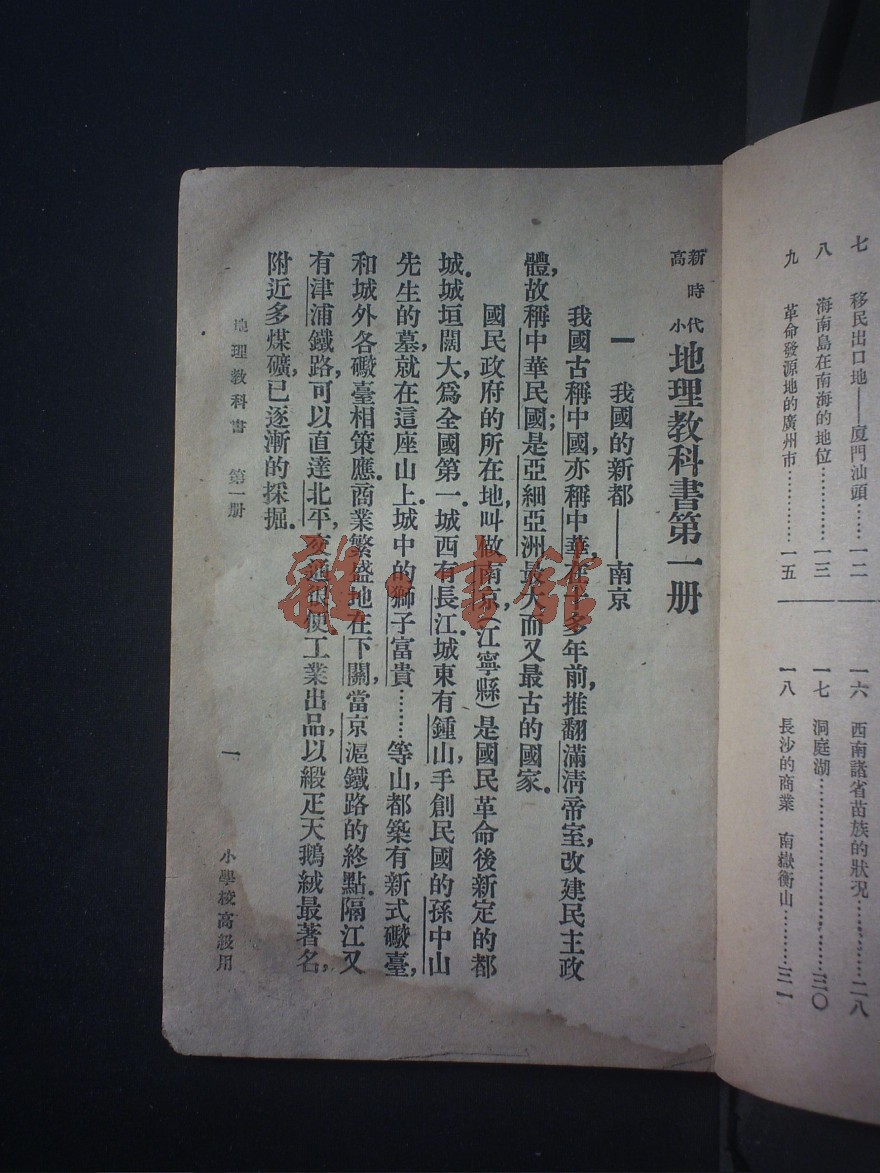 七　移民出口地——廈門汕頭……一二
八　海南島在南海的地位…………一三
九　革命發源地的廣州市…………一五
一六　西南諸省苗族的狀况…………二八
一七　洞庭湖…………………………三〇
一八　長沙的商業　南嶽衡山………三一
新時代高小地理教科書第一册
一　我國的新都——南京
我國古稱中國，亦稱中華，在十多年前，推翻滿淸帝室，改建民主政
體，故稱中華民國；是亞細亞洲最大而又最古的國家。
國民政府的所在地，叫做南京，（江寧縣）是國民革命後新定的都
城。城垣闊大，爲全國第一。城西有長江，城東有鍾山，手創民國的孫中山
先生的墓，就在這座山上。城中的獅子富貴……等山，都築有新式礮臺，
和城外各礮臺相策應。商業繁盛地在下關，當京滬鐵路的終點。隔江又
有津浦鐵路，可以直達北平，交通很便。工業出品，以緞疋天鵝絨最著名，
附近多煤礦，已逐漸的採掘。
地理教科書　第一册
一
小學校高級用
雜·書館